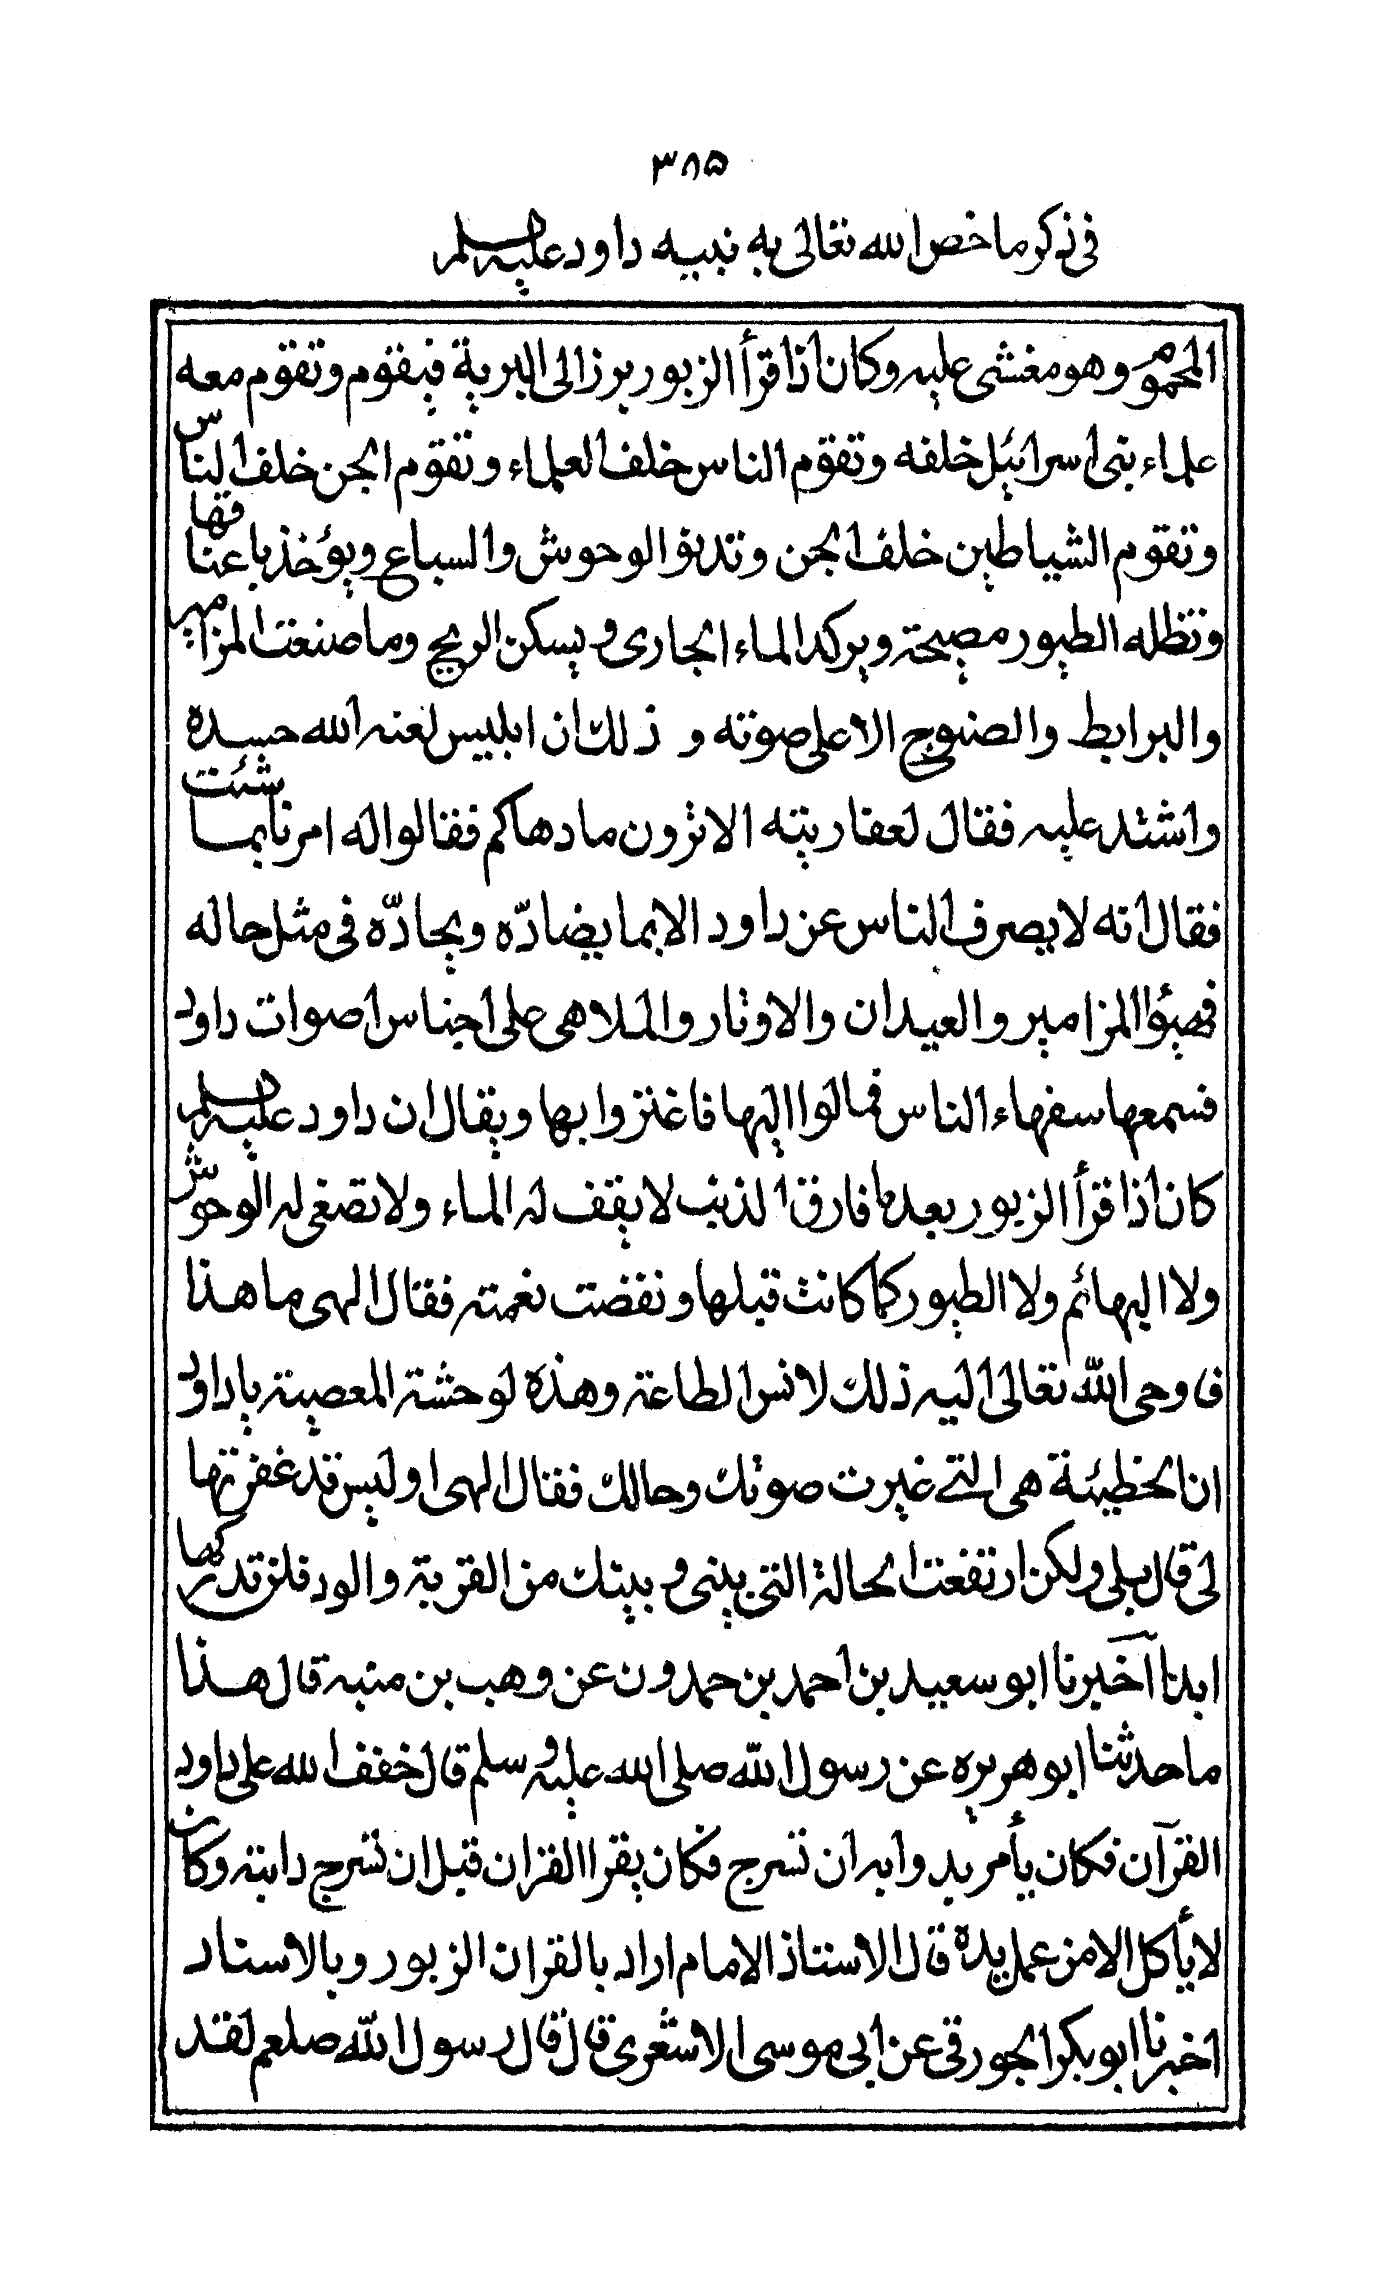 ٣٨٥
فى ذكر ما خص الله تعالى به نبيه داود عليه السلم
المحموم وهو مغشى عليه وكان اذا قرأ الزبور برز الى البرية فيقوم وتقوم معه
علماء بنى اسرائيل خلفه وتقوم الناس خلف العلماء وتقوم الجن خلف الناس
وتقوم الشياطين خلف الجن وتدنو الوحوش والسباع ويؤخذ باعناقها
وتظله الطيور مصيحة ويركد الماء الجارى ويسكن الريح وما صنعت المزامير
والبرابط والصنوج الا على صوته و ذلك ان ابليس لعنه الله حسده
واشتد عليه فقال لعفاريته الا ترون ما دهاكم فقالوا له امرنا بما شئت
فقال انه لا يصرف الناس عن داود الا بما يضادّه ويحادّه فى مثل حاله
فهيؤا المزامير والعيدان والاوتار والملاهى على اجناس اصوات داود
فسمعها سفهاء الناس فمالوا اليها فاغتروا بها ويقال ان داود عليه السلم
كان اذا قرأ الزبور بعد ما فارق الذنب لا يقف له الماء ولا تصغى له الوحوش
ولا البهائم ولا الطيور كما كانت قبلها ونقضت نعمته فقال الهى ما هذا
فاوحى الله تعالى اليه ذلك لانس الطاعة وهذه لوحشة المعصية يا داود
ان الخطيئة هى التے غيرت صوتك وحالك فقال الهى او ليس قد غفرتها
لى قال بلى ولكن ارتفعت الحالة التى بينى و بينك من القربة والود فلن تدركها
ابدا آخبرنا ابو سعيد بن احمد بن حمدون عن وهب بن منبه قال هذا
ما حدثنا ابو هريره عن رسول الله صلى الله عليه و سلم قال خفف الله على داود
القرآن فكان يأمر بدوابه ان تسرج فكان يقرا القران قبل ان تسرج دابته وكان
لا يأكل الا من عمل يده قال الاستاذ الامام اراد بالقران الزبور وبالاسناد
اخبرنا ابو بكر الجورقى عن ابى موسى الاشعرى قال قال رسول الله صلعم لقد